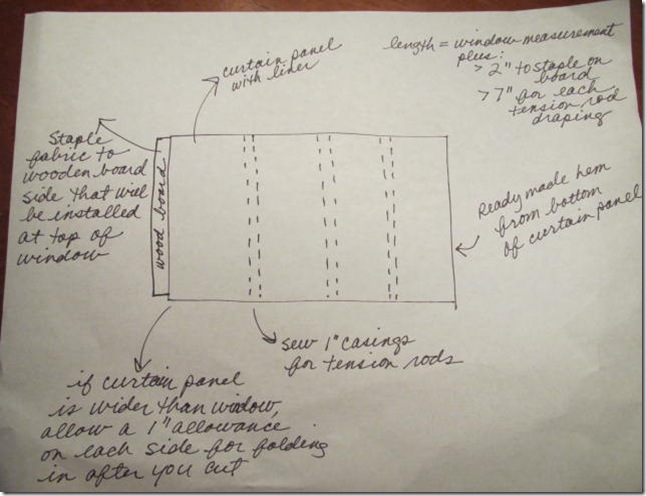 curtain panel
with liner
length = window measurement
plus:
> 2" to staple on
board
> 7" for each
tension rod
draping
Staple
fabric to
wooden board
side that will
be installed
at top of
window
wood board
Ready made hem
from bottom
of curtain panel
sew 1" casings
for tension rods
if curtain panel
is wider than window,
allow a 1" allowance
on each side for folding
in after you cut